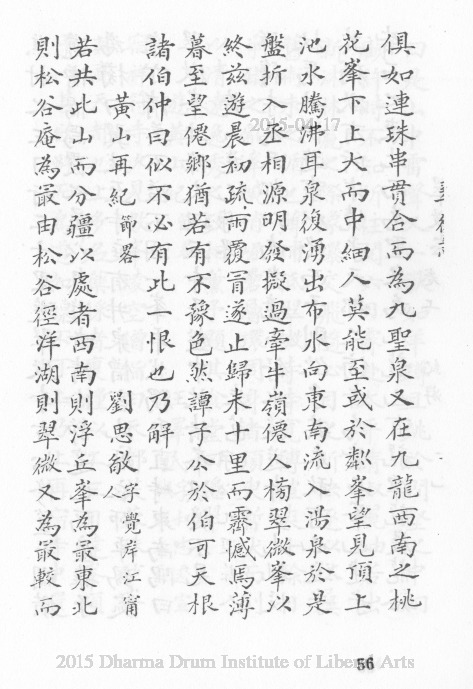 俱如連珠串貫合而為九聖泉又在九龍西南之桃
花峯下上大而中細人莫能至或於鄰峯望見頂上
池水騰沸耳泉復湧出布水向東南流湯泉於是
盤折入丞相源明發擬過牽牛嶺僊人榜翠微峯以
終茲遊晨初疏雨覆冒遂止歸未十里而霽憾焉薄
暮至望僊鄉猶若有不豫色然譚子公於伯可天根
諸伯仲曰似不必有此一恨也乃解
黃山再紀 節畧 劉思敏 字覺岸江甯人
若共此山而分疆以處者西南則浮丘峯為最東北
則松谷庵為最由松谷徑洋湖則翠微又為最較而
2015-04-17
56
2015 Dharma Drum Institute of Liberal Arts